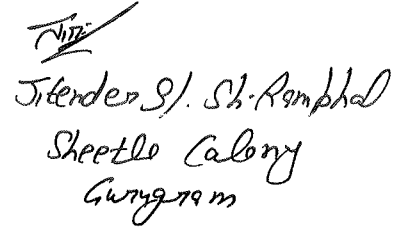 Jitender S/. Sh. Ramphal
Sheetle Calony
Gurugram